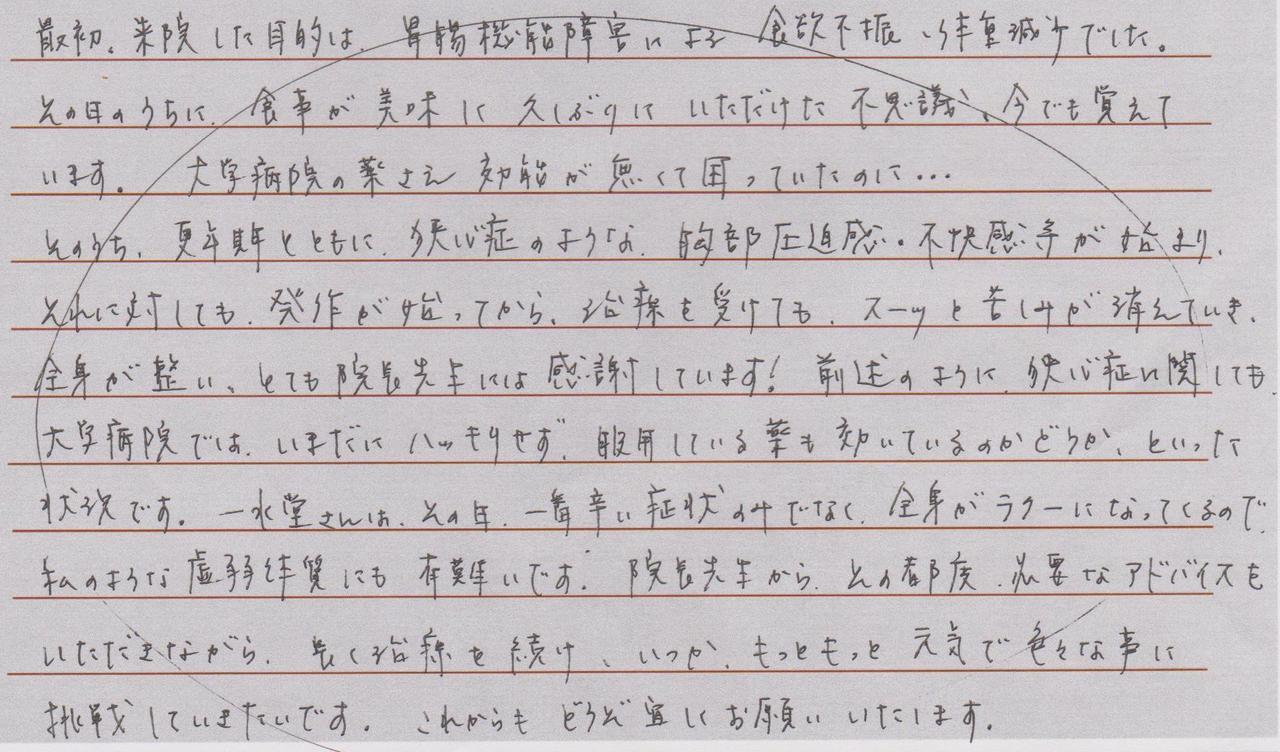 最初、来院した目的は、胃腸機能障害による 食欲不振、体重減少でした。
その日のうちに、食事が美味に久しぶりにいただけた不思議、今でも覚えて
います。 大学病院の薬さえ効能が無くて困っていたのに…
そのうち、更年期とともに、狭心症のような、胸部圧迫感・不快感等が始まり、
それに対しても、発作が始ってから、治療を受けても、スーッと苦しみが消えていき、
全身が整い、とても院長先生には感謝しています! 前述のように、狭心症に関しても、
大学病院では、いまだにハッキリせず、服用している薬も効いているのかどうか、といった
状況です。一水堂さんは、その日、一番辛い症状のみでなく、全身がラクーになってくるので、
私のような虚弱体質にも有難いです。院長先生から、その都度、必要なアドバイスを
いただきながら、長く治療を続け、いつか、もっともっと元気で色々な事に
挑戦していきたいです。 これからもどうぞ宜しくお願いいたします。